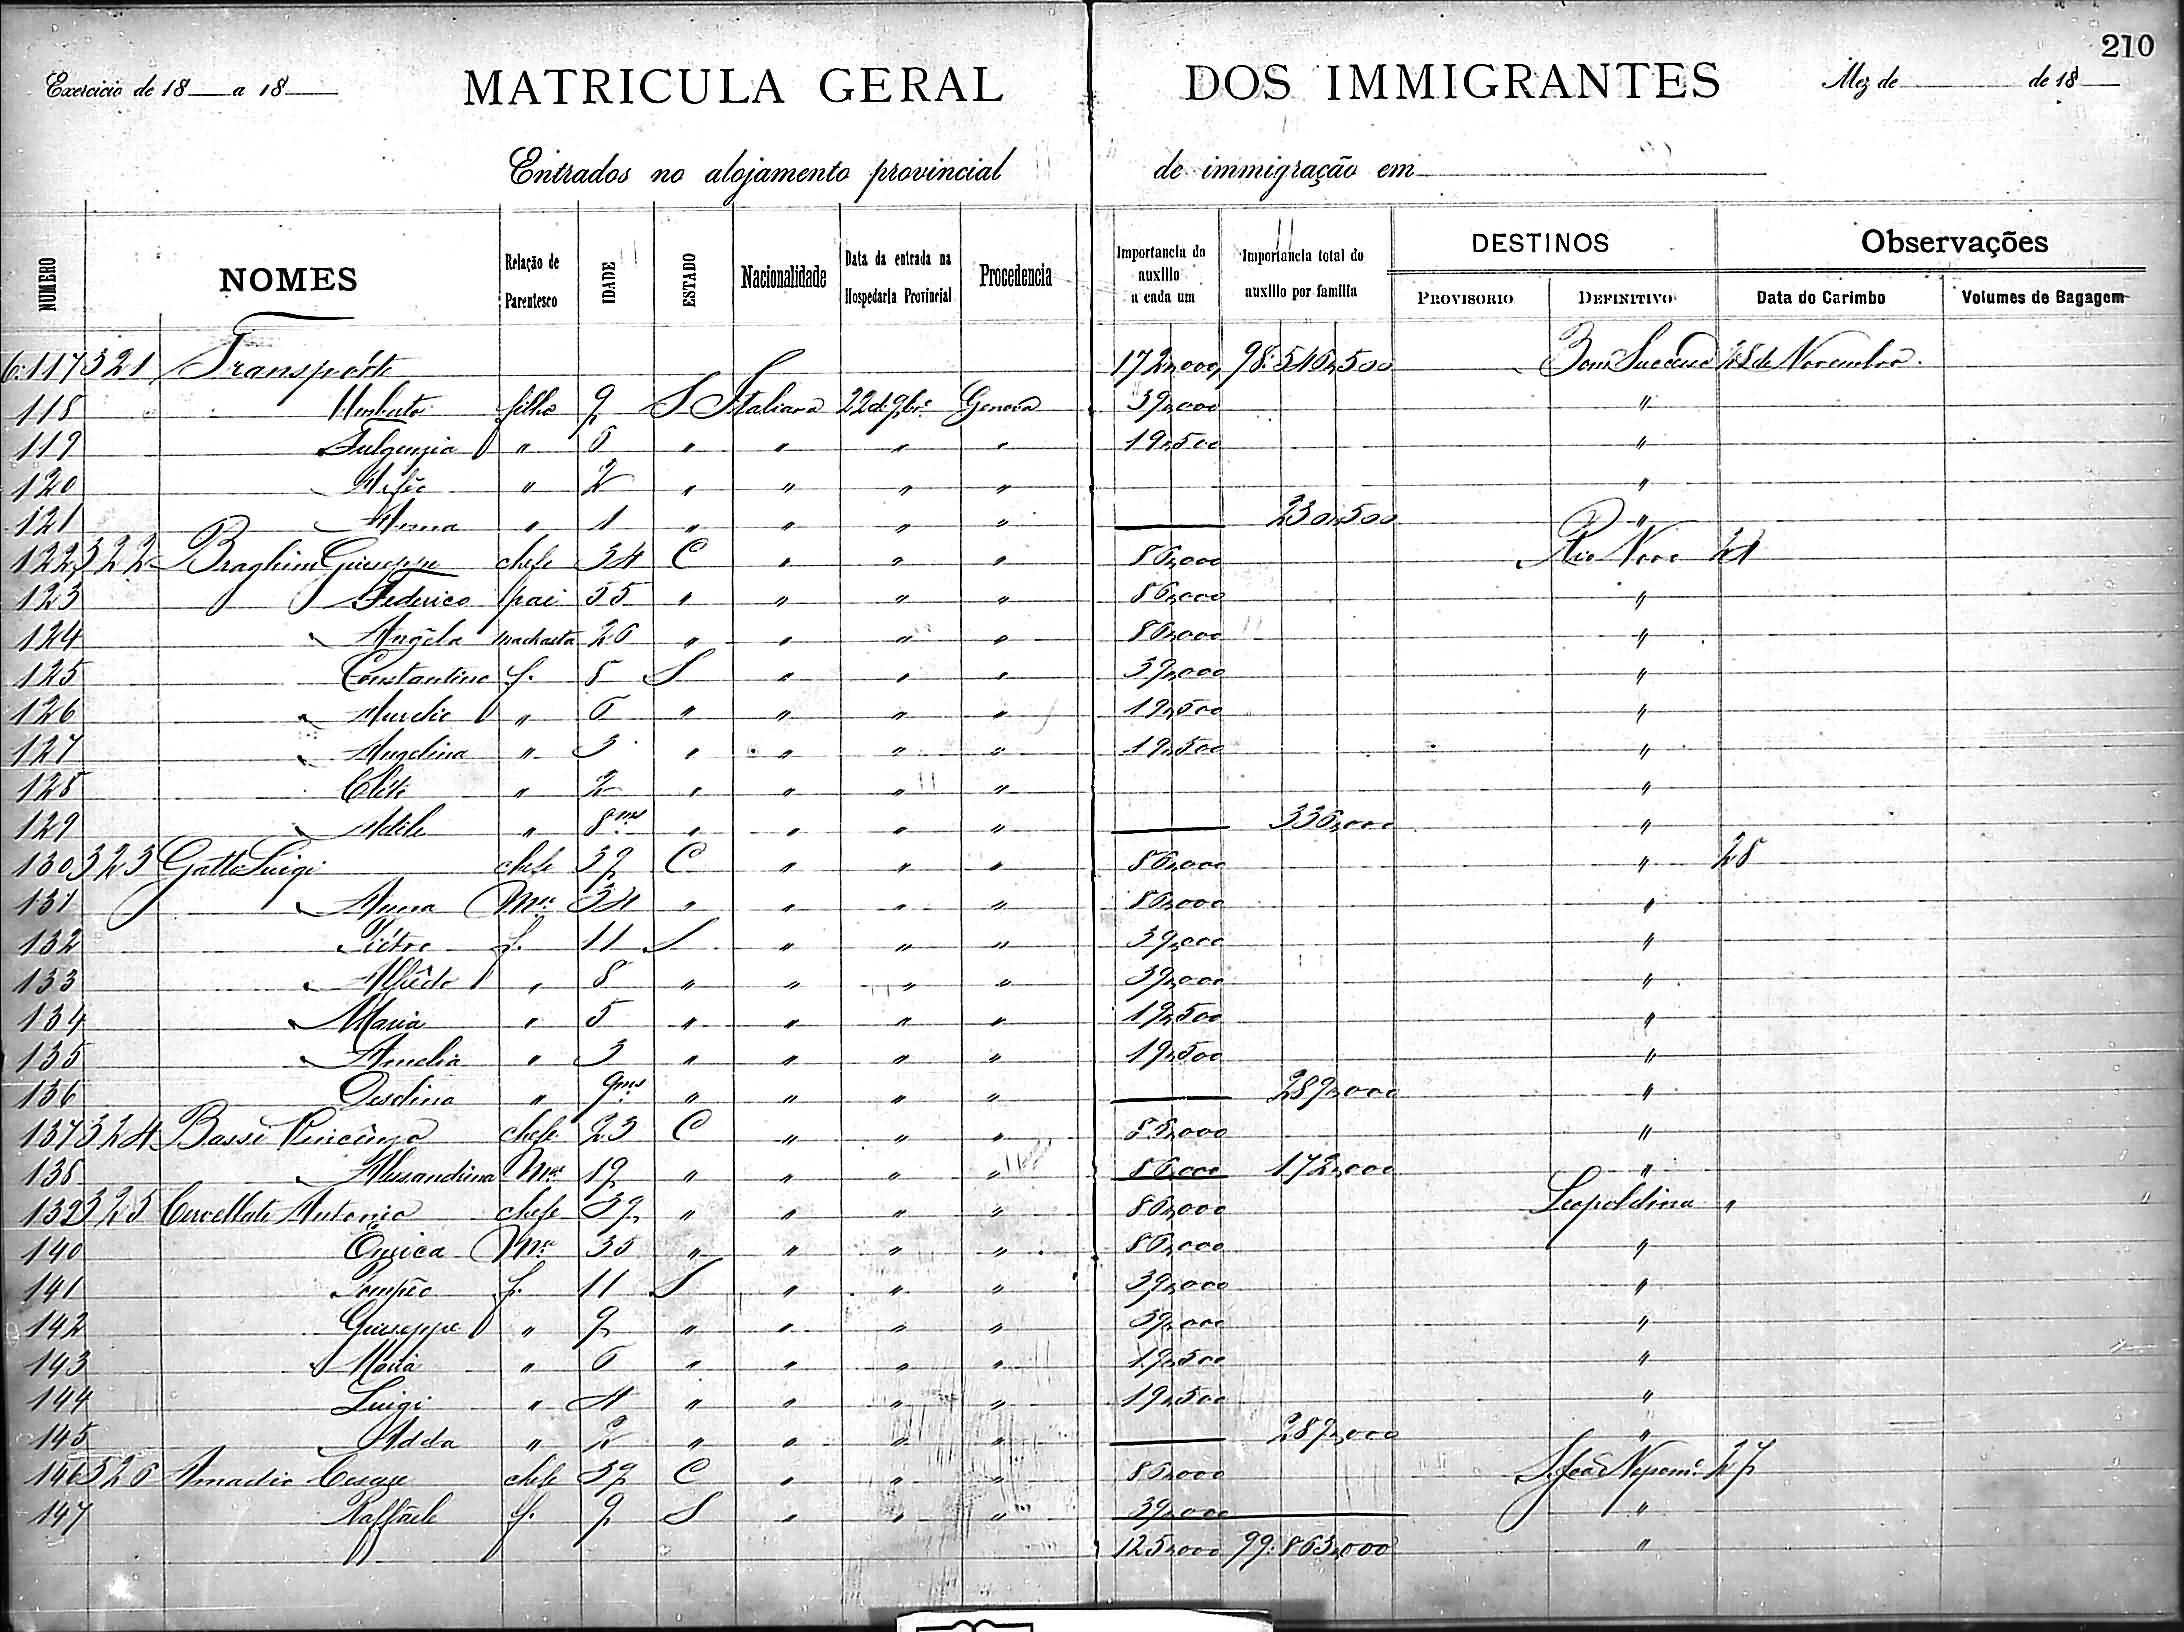 210
Exercicio de 18 a 18 MATRICULA GERAL DOS IMMIGRANTES Mez de de 18
Entrados no alojamento provincial de immigração em
NUMERO NOMES Relação de Parentesco IDADE ESTADO Nacionalidade Data da entrada na Hospedaria Provincial Procedencia Importancia do auxilio a cada um Importancia total do auxilio por familia DESTINOS PROVISORIO DEFINITIVO Observações Data do Carimbo Volumes de Bagagem
6:117 321 Transporte 172,000 98:516,500 Bom Successo 28 de Novembro
118 Umberto filho 9 S Italiana 22 de 9br.o Genova 39,000 "
119 Fulgenzia " 6 " " " " 19,500 "
120 " 2 " " " " "
121 Anna " 1 " " " " 230,500 "
122 322 Braghini Giuseppe chefe 34 C " " " 86,000 Rio Novo 24
123 Federico pai 55 " " " " 86,000 "
124 Angela 26 " " " " 86,000 "
125 Constantino f. 8 S " " " 39,000 "
126 Aurelio " 6 " " " " 19,500 "
127 Angelina " 3 " " " " 19,500 "
128 Cleto " 2 " " " " "
129 Adele " 8 ms " " " " 336,000 "
130 323 Gatti Luigi chefe 39 C " " " 86,000 " 28
131 Anna Mer 34 " " " " 86,000 "
132 Pietro f. 11 S " " " 39,000 "
133 Alfredo " 8 " " " " 39,000 "
134 Maria " 5 " " " " 19,500 "
135 Amelia " 3 " " " " 19,500 "
136 " 9 ms " " " " 289,000 "
137 324 Bassi Vincenzo chefe 23 C " " " 86,000 "
138 Alessandrina Mer 19 " " " " 86,000 172,000 "
139 325 Cervellati Antonio chefe 39 " " " " 86,000 Leopoldina "
140 Mer 35 " " " " 86,000 "
141 Pompeo f. 11 S " " " 39,000 "
142 Giuseppe " 9 " " " " 39,000 "
143 Maria " 6 " " " " 19,500 "
144 Luigi " 4 " " " " 19,500 "
145 Adda " 2 " " " " 289,000 "
146 326 Amadio Cesare chefe 39 C " " " 86,000 S. João Nepom.o 27
147 Raffaele f. 9 S " " " 39,000 "
125,000 99:863,000 "